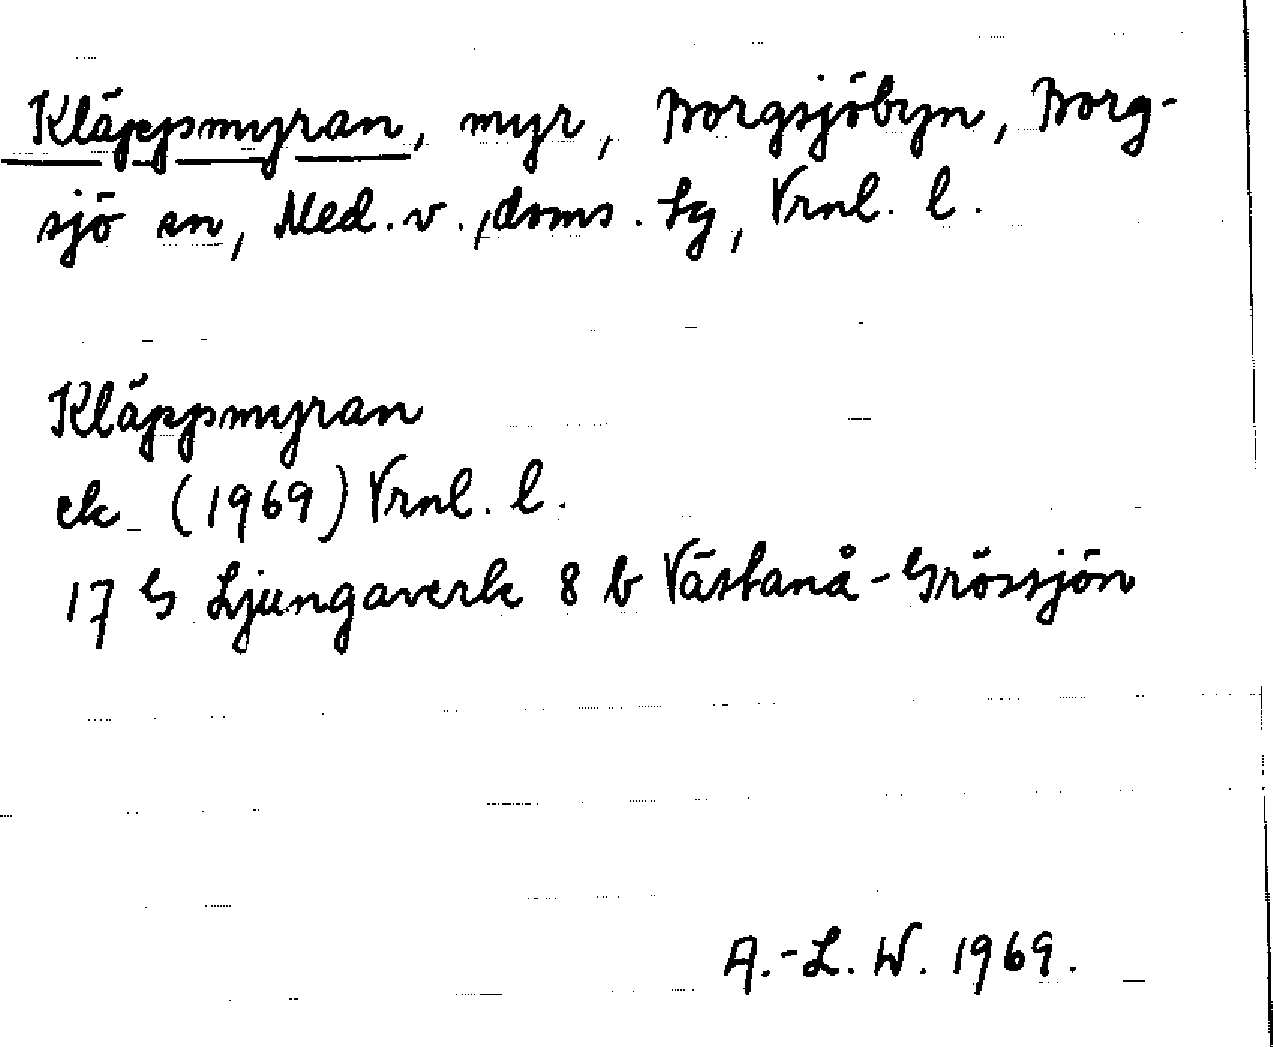 Kläppmyran, myr, Borgsjöbyn, Borg-
sjö sn, Med. v., doms. tg, Vrnl. l.
Kläppmyran
ek. (1969) Vrnl. l.
17 G Ljungaverk 8 b Västanå-Grössjön
A.-L. W. 1969.